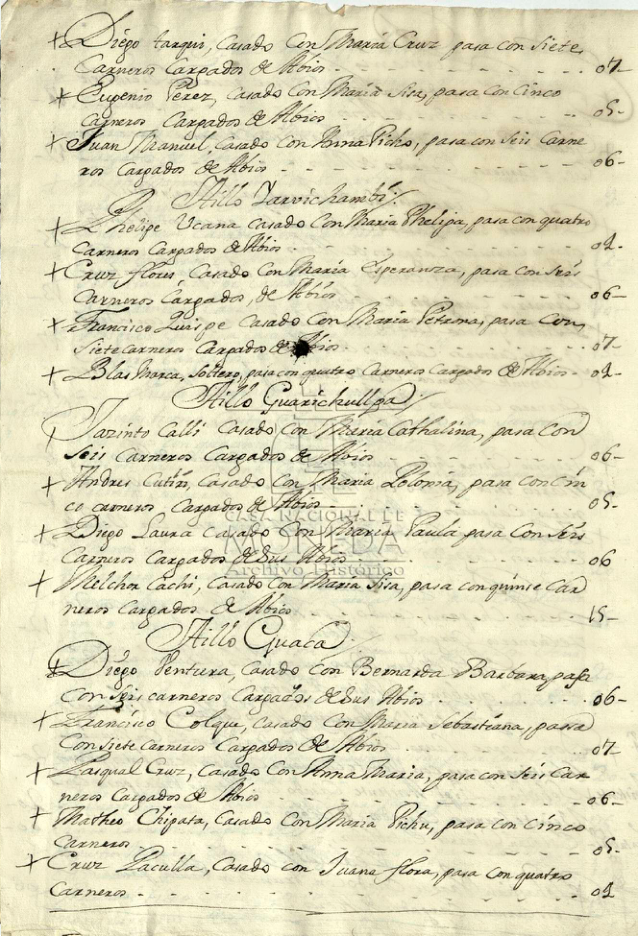 + Diego tarqui, Casado Con Maria Cruz pasa con siete
Carneros Cargados de Abios - - - - - - 07-
+ Eugenio Perez, casado Con Maria Sisa, pasa con Cinco
Carneros Cargados de Abios - - - - - - 05-
+ Juan Manuel, Casado Con Anna Picho, pasa con Seis Carne
ros Cargados de Abios - - - - - - 06-
Aillo Yarvichambi
+ Phelipe Ucana casado Con Maria Phelipa, pasa con quatro
Carneros Cargados de Abios - - - - - - 04-
+ Cruz flores Casado Con Maria Esperanza, pasa con Seis
Carneros Cargados, de Abios - - - - - - 06-
+ Francisco Quispe Casado Con Maria Petrona, pasa Con
siete carneros Cargados de Abios - - - - - - 07-
+ Blas Marca, Soltero, pasa con quatro Carneros Cargados de Abios - 04-
Aillo Guarichullpa
Jazinto Calli Casado Con Maria Cathalina, pasa Con
seis Carneros Cargados de Abios - - - - - - 06-
+ Andres Cutin, Casado Con Maria Polonia, pasa con Cin
co carneros Cargados de Abios - - - - - - 05-
CASA NACIONAL DE
+ Diego Laura Casado Con Maria Paula pasa Con Seis
MONEDA
Carneros Cargados de sus Abios - - - - - - 06
Archivo Histórico
+ Melchor Cachi, Casado Con Maria Sisa, pasa con quinse Car
neros Cargados de Abios - - - - - - 15-
Aillo Guaca
+ Diego Ventura, Casado con Bernarda Barbara, pasa
Con seis carneros Cargados de sus Abios - - - - - - 06-
+ Francisco Colque, Casado Con Maria Sebastiana, passa
Con siete Carneros Cargados de Abios - - - - - - 07-
+ Pasqual Cruz, Casado Con Anna Maria, pasa con seis Car
neros Cargados de Abios - - - - - - 06-
+ Matheo Chipata, Casado Con Maria Pichu, pasa con cinco
Carneros - - - - - - 05-
+ Cruz Paculla, Casado con Juana flora, pasa con quatro
Carneros - - - - - - 04